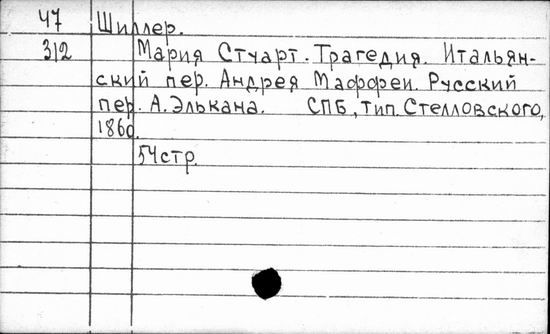 47 Шиллер.
312 Мария Стуарт. Трагедия. Итальян-
ский пер. Андрея Маффеи. Русский
пер. А. Элькана. СПБ, тип. Стелловского,
1860.
54 стр.